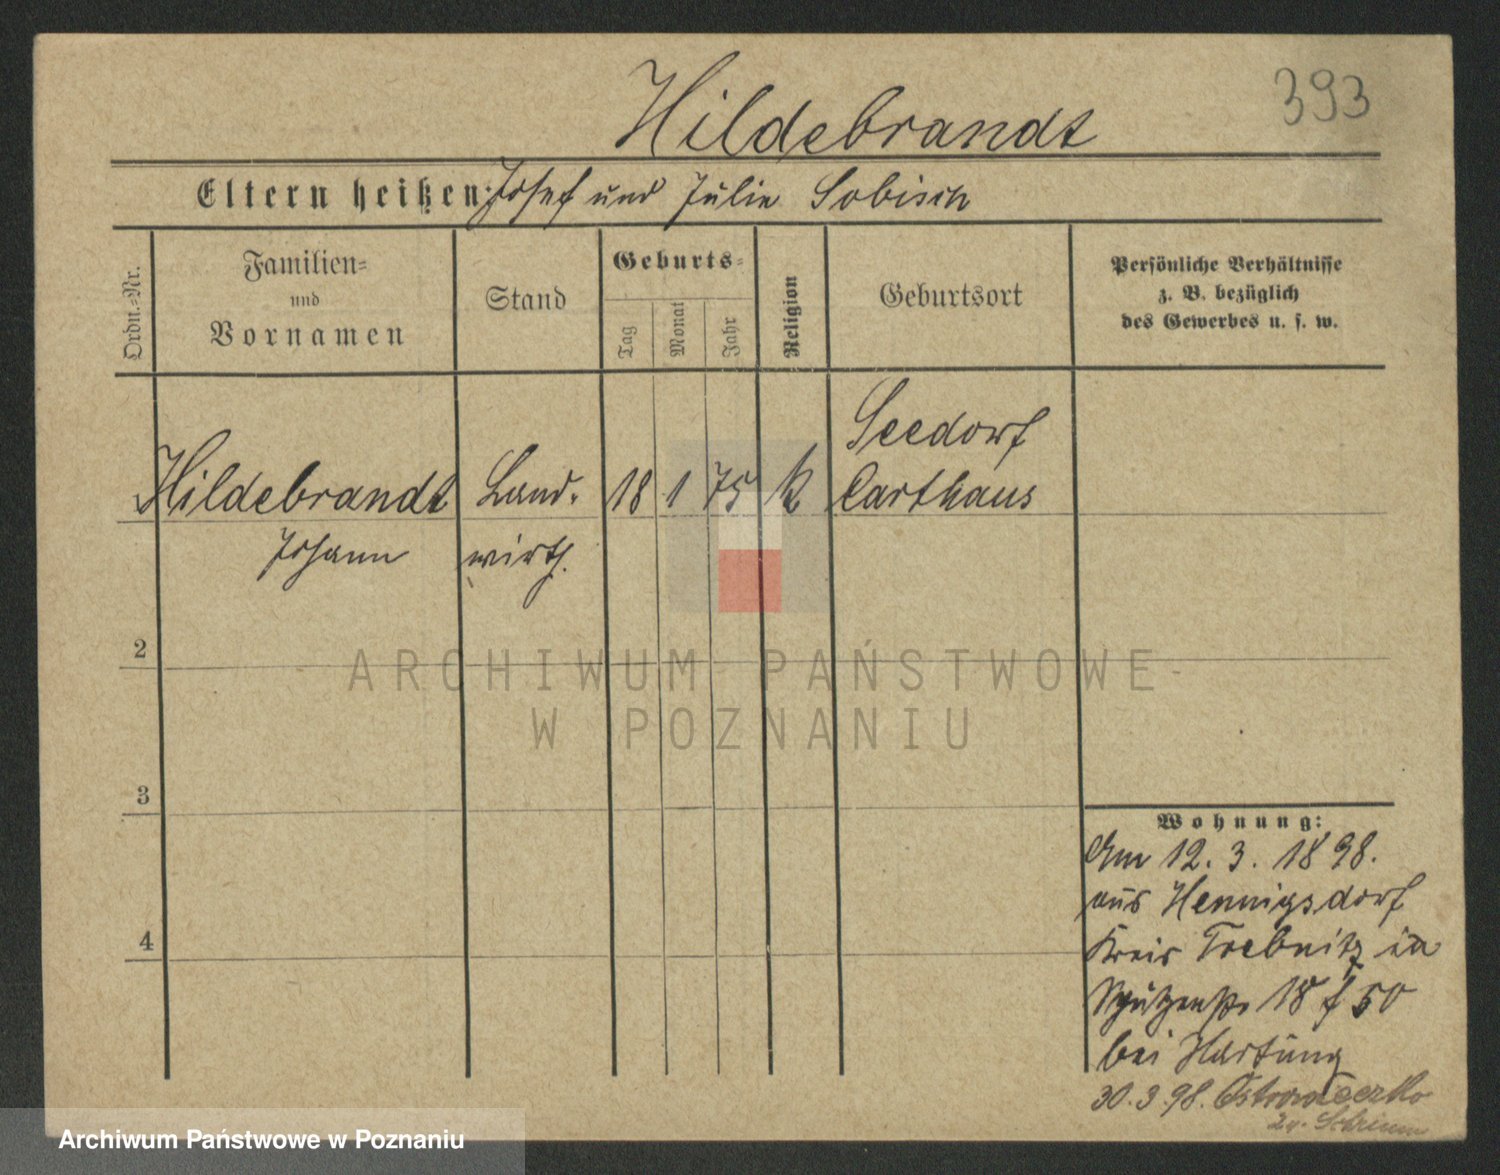 393
Hildebrandt
Eltern heißen: Josef und Julie Sobisch
Ordn.-Nr.
Familien-
und
Vornamen
Stand
Geburts-
Tag
Monat
Jahr
Religion
Geburtsort
Persönliche Verhältnisse
z. B. bezüglich
des Gewerbes u. s. w.
Seedorf
Hildebrandt Land- 18 1 75 k Carthaus
Johann wirth.
2
ARCHIWUM PAŃSTWOWE
W POZNANIU
3
Wohnung:
Am 12. 3. 1898.
aus Hennigsdorf
4
Kreis Trebnitz in
Schützenstr. 18 f 50
bei Hartung
30.3.98. Ostrowieczko
Schrimm
Archiwum Państwowe w Poznaniu